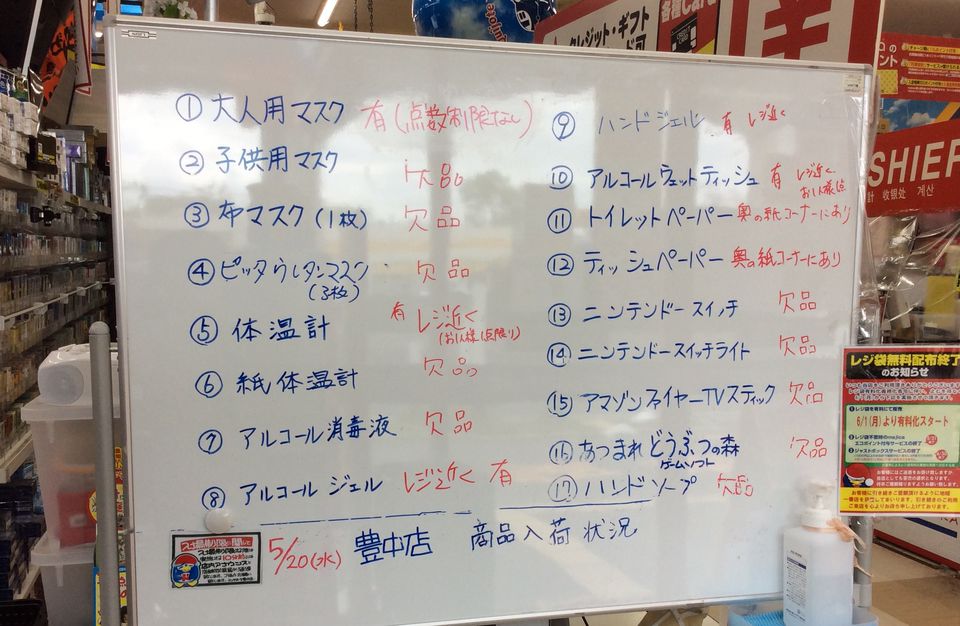 クレジット・ギフト
各種Card
① 大人用マスク 有(点数制限なし)
② 子供用マスク 欠品
③ 布マスク(1枚) 欠品
④ ピッタウレタンマスク 欠品
(3枚)
⑤ 体温計 有 レジ近く
(お1人様1点限り)
⑥ 紙体温計 欠品
⑦ アルコール消毒液 欠品
⑧ アルコールジェル レジ近く 有
⑨ ハンドジェル 有 レジ近く
⑩ アルコールウェットティッシュ 有 レジ近く
お1人様1点
⑪ トイレットペーパー 奥の紙コーナーにあり
⑫ ティッシュペーパー 奥の紙コーナーにあり
⑬ ニンテンドースイッチ 欠品
⑭ ニンテンドースイッチライト 欠品
⑮ アマゾンファイヤーTVスティック 欠品
⑯ あつまれどうぶつの森 欠品
ゲームソフト
⑰ ハンドソープ 欠品
5/20(水) 豊中店 商品入荷状況
SHIER
计 收银处 계산
レジ袋無料配布終了
のお知らせ
6/1(月)より有料化スタート